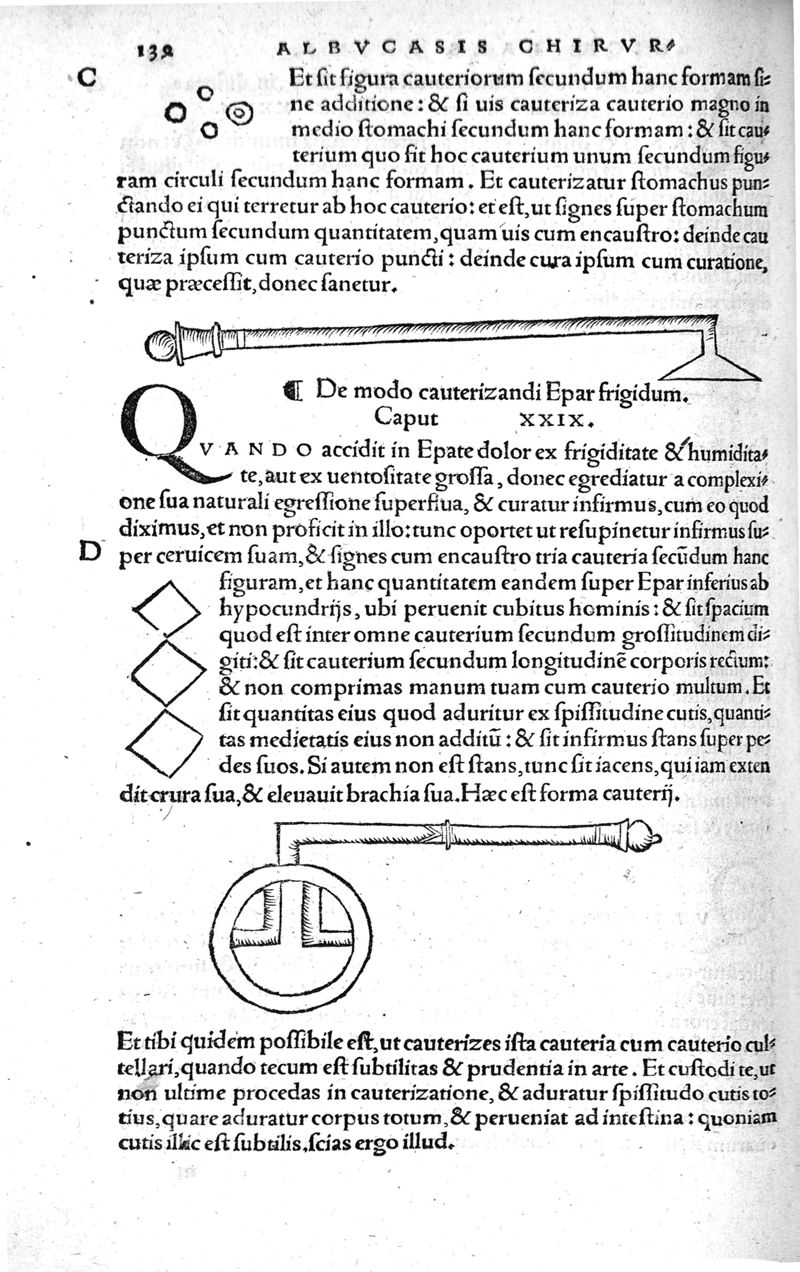 132 ALBVCASIS CHIRVR⸗
C Et sit figura cauteriorum secundum hanc formam si⸗
ne additione: & si uis cauteriza cauterio magno in
medio stomachi secundum hanc formam: & sit cau⸗
terium quo sit hoc cauterium unum secundum figu⸗
ram circuli secundum hanc formam. Et cauterizatur stomachus pun⸗
ctando ei qui terretur ab hoc cauterio: et est, ut signes super stomachum
punctum secundum quantitatem, quam uis cum encaustro: deinde cau
teriza ipsum cum cauterio puncti: deinde cura ipsum cum curatione,
quæ præcessit, donec sanetur.
¶ De modo cauterizandi Epar frigidum.
Caput XXIX.
QVANDO accidit in Epate dolor ex frigiditate & humidita⸗
te, aut ex uentositate grossa, donec egrediatur a complexi⸗
one sua naturali egressione superflua, & curatur infirmus, cum eo quod
diximus, et non proficit in illo: tunc oportet ut resupinetur infirmus su⸗
D per ceruicem suam, & signes cum encaustro tria cauteria secūdum hanc
figuram, et hanc quantitatem eandem super Epar inferius ab
hypocundrijs, ubi peruenit cubitus hominis: & sit spacium
quod est inter omne cauterium secundum grossitudinem di⸗
giti: & sit cauterium secundum longitudinē corporis rectum:
& non comprimas manum tuam cum cauterio multum. Et
sit quantitas eius quod aduritur ex spissitudine cutis, quanti⸗
tas medietatis eius non additū: & sit infirmus stans super pe⸗
des suos. Si autem non est stans, tunc sit iacens, qui iam exten
dit crura sua, & eleuauit brachia sua. Hæc est forma cauterij.
Et tibi quidem possibile est, ut cauterizes ista cauteria cum cauterio cul⸗
tellari, quando tecum est subtilitas & prudentia in arte. Et custodi te, ut
non ultime procedas in cauterizatione, & aduratur spissitudo cutis to⸗
tius, quare aduratur corpus totum, & perueniat ad intestina: quoniam
cutis illic est subtilis. scias ergo illud.